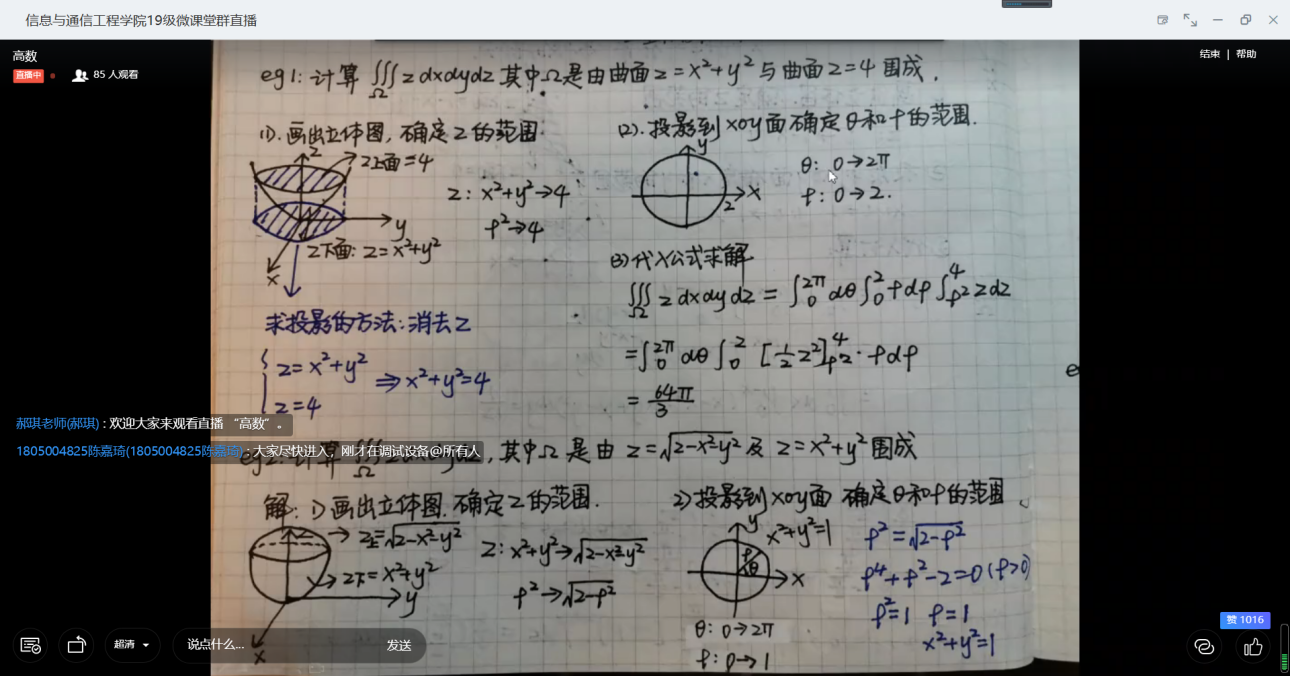 信息与通信工程学院19级微课堂群直播
高数
直播中 85 人观看
结束 | 帮助
eg1: 计算 ∭Ω z dxdydz 其中Ω是由曲面 z=x²+y² 与曲面 z=4 围成.
(1). 画出立体图, 确定 z 的范围.
z
z上面=4
y
z下面: z=x²+y²
x
z: x²+y²→4
ρ²→4
求投影的方法: 消去z
z=x²+y²
⇒x²+y²=4
z=4
(2). 投影到 xoy 面确定 θ 和 ρ 的范围.
y
x
2
θ: 0→2π
ρ: 0→2.
(3) 代入公式求解
∭Ω z dxdydz = ∫₀^2π dθ ∫₀^2 ρdρ ∫ρ²^4 z dz
= ∫₀^2π dθ ∫₀^2 [½z²]ρ²^4 · ρdρ
= 64π/3
e
郝琪老师(郝琪) : 欢迎大家来观看直播 “高数” 。
1805004825陈嘉琦(1805004825陈嘉琦) : 大家尽快进入，刚才在调试设备@所有人
其中Ω 是 由 z=√(2-x²-y²) 及 z=x²+y² 围成
解: 1) 画出立体图. 确定 z 的范围.
z上=√(2-x²-y²)
z下=x²+y²
y
x
z: x²+y²→√(2-x²-y²)
ρ²→√(2-ρ²)
2) 投影到 xoy 面 确定 θ 和 ρ 的范围.
y
x²+y²=1
ρ
θ
x
θ: 0→2π
ρ: 0→1
ρ²=√(2-ρ²)
ρ⁴+ρ²-2=0 (ρ>0)
ρ²=1 ρ=1
x²+y²=1
超清
说点什么...
发送
赞 1016